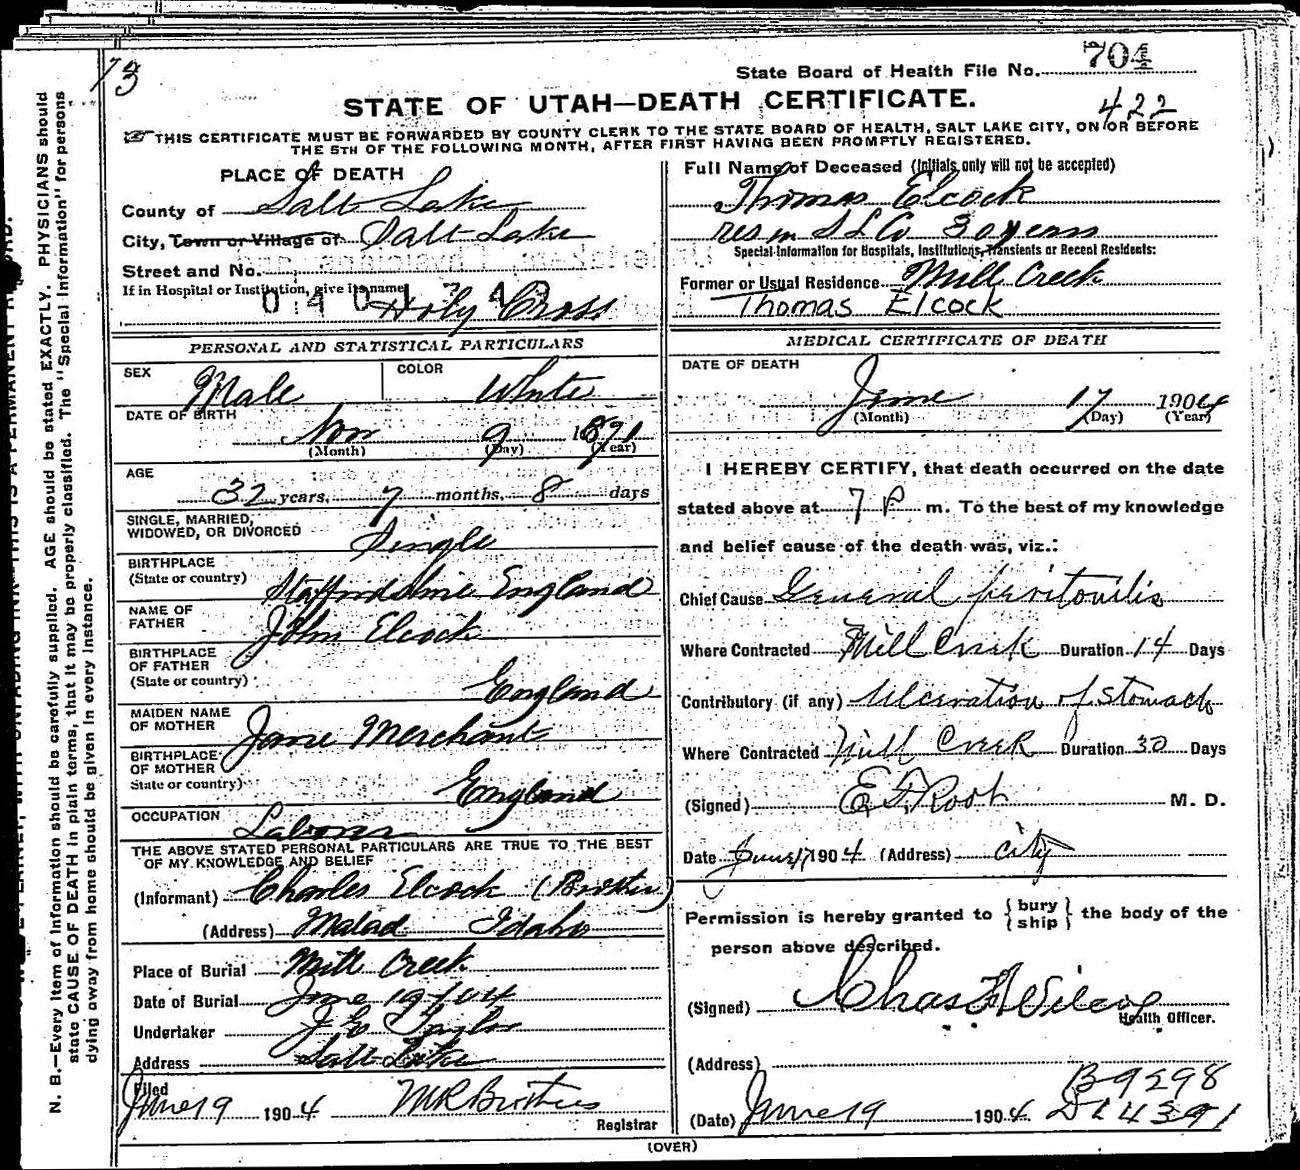 73
State Board of Health File No. 704
STATE OF UTAH—DEATH CERTIFICATE.
422
THIS CERTIFICATE MUST BE FORWARDED BY COUNTY CLERK TO THE STATE BOARD OF HEALTH, SALT LAKE CITY, ON OR BEFORE
THE 5TH OF THE FOLLOWING MONTH, AFTER FIRST HAVING BEEN PROMPTLY REGISTERED.
PLACE OF DEATH
County of Salt Lake
City, Town or Village of Salt Lake
Street and No.
If in Hospital or Institution, give its name
Holy Cross
Full Name of Deceased (Initials only will not be accepted)
Thomas Elcock
res in S L Co 30 years
Special Information for Hospitals, Institutions, Transients or Recent Residents:
Former or Usual Residence Mill Creek
Thomas Elcock
PERSONAL AND STATISTICAL PARTICULARS
SEX Male COLOR White
DATE OF BIRTH
Nov 9 1871
(Month) (Day) (Year)
AGE
32 years, 7 months, 8 days
SINGLE, MARRIED,
WIDOWED, OR DIVORCED Single
BIRTHPLACE
(State or country) Staffordshire England
NAME OF
FATHER John Elcock
BIRTHPLACE
OF FATHER
(State or country) England
MAIDEN NAME
OF MOTHER Jane Merchant
BIRTHPLACE
OF MOTHER
State or country) England
OCCUPATION Laborer
THE ABOVE STATED PERSONAL PARTICULARS ARE TRUE TO THE BEST
OF MY KNOWLEDGE AND BELIEF
(Informant) Charles Elcock (Brother)
(Address) Malad Idaho
Place of Burial Mill Creek
Date of Burial June 19 1904
Undertaker J E Taylor
Address Salt Lake
Filed
June 19 1904 M R Brothers
Registrar
MEDICAL CERTIFICATE OF DEATH
DATE OF DEATH
June 17 1904
(Month) (Day) (Year)
I HEREBY CERTIFY, that death occurred on the date
stated above at 7 P m. To the best of my knowledge
and belief cause of the death was, viz.:
Chief Cause General peritonitis
Where Contracted Mill Creek Duration 14 Days
Contributory (if any) Ulceration of Stomach
Where Contracted Mill Creek Duration 30 Days
(Signed) E. F. Root M. D.
Date June 17 1904 (Address) City
Permission is hereby granted to { bury
ship } the body of the
person above described.
(Signed) Chas F Wilcox
Health Officer.
(Address)
B 9298
(Date) June 19 1904 DL 4391
(OVER)
N. B.—Every item of information should be carefully supplied. AGE should be stated EXACTLY. PHYSICIANS should
state CAUSE OF DEATH in plain terms, that it may be properly classified. The "Special Information" for persons
dying away from home should be given in every instance.